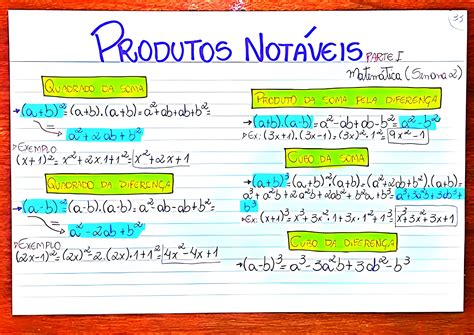 33
PRODUTOS NOTÁVEIS PARTE I
Matemática (Semana 2)
QUADRADO DA SOMA
→(a+b)²=(a+b).(a+b)=a²+ab+ab+b²=
= a²+2ab+b²
▷EXEMPLO
(x+1)²= x²+2x1+1²= x²+2x+1
QUADRADO DA DIFERENÇA
→(a-b)²=(a-b).(a-b)=a²-ab-ab+b²=
= a²-2ab+b²
▷EXEMPLO
(2x-1)²=(2x)²-2.(2x).1+1²= 4x²-4x+1
PRODUTO DA SOMA PELA DIFERENÇA
→(a+b).(a-b)=a²-ab+ab-b²=a²-b²
▷Ex: (3x+1).(3x-1)=(3x)²-1²= 9x²-1
CUBO DA SOMA
→(a+b)³=(a+b)².(a+b)=(a²+2ab+b²).(a+b)=
a³+a²b+2a²b+2ab²+ab²+b³=a³+3a²b+3ab²+
b³
▷Ex: (x+1)³=x³+3x².1+3x.1²+1³ x³+3x²+3x+1
CUBO DA DIFERENÇA
→(a-b)³=a³-3a²b+3ab²-b³